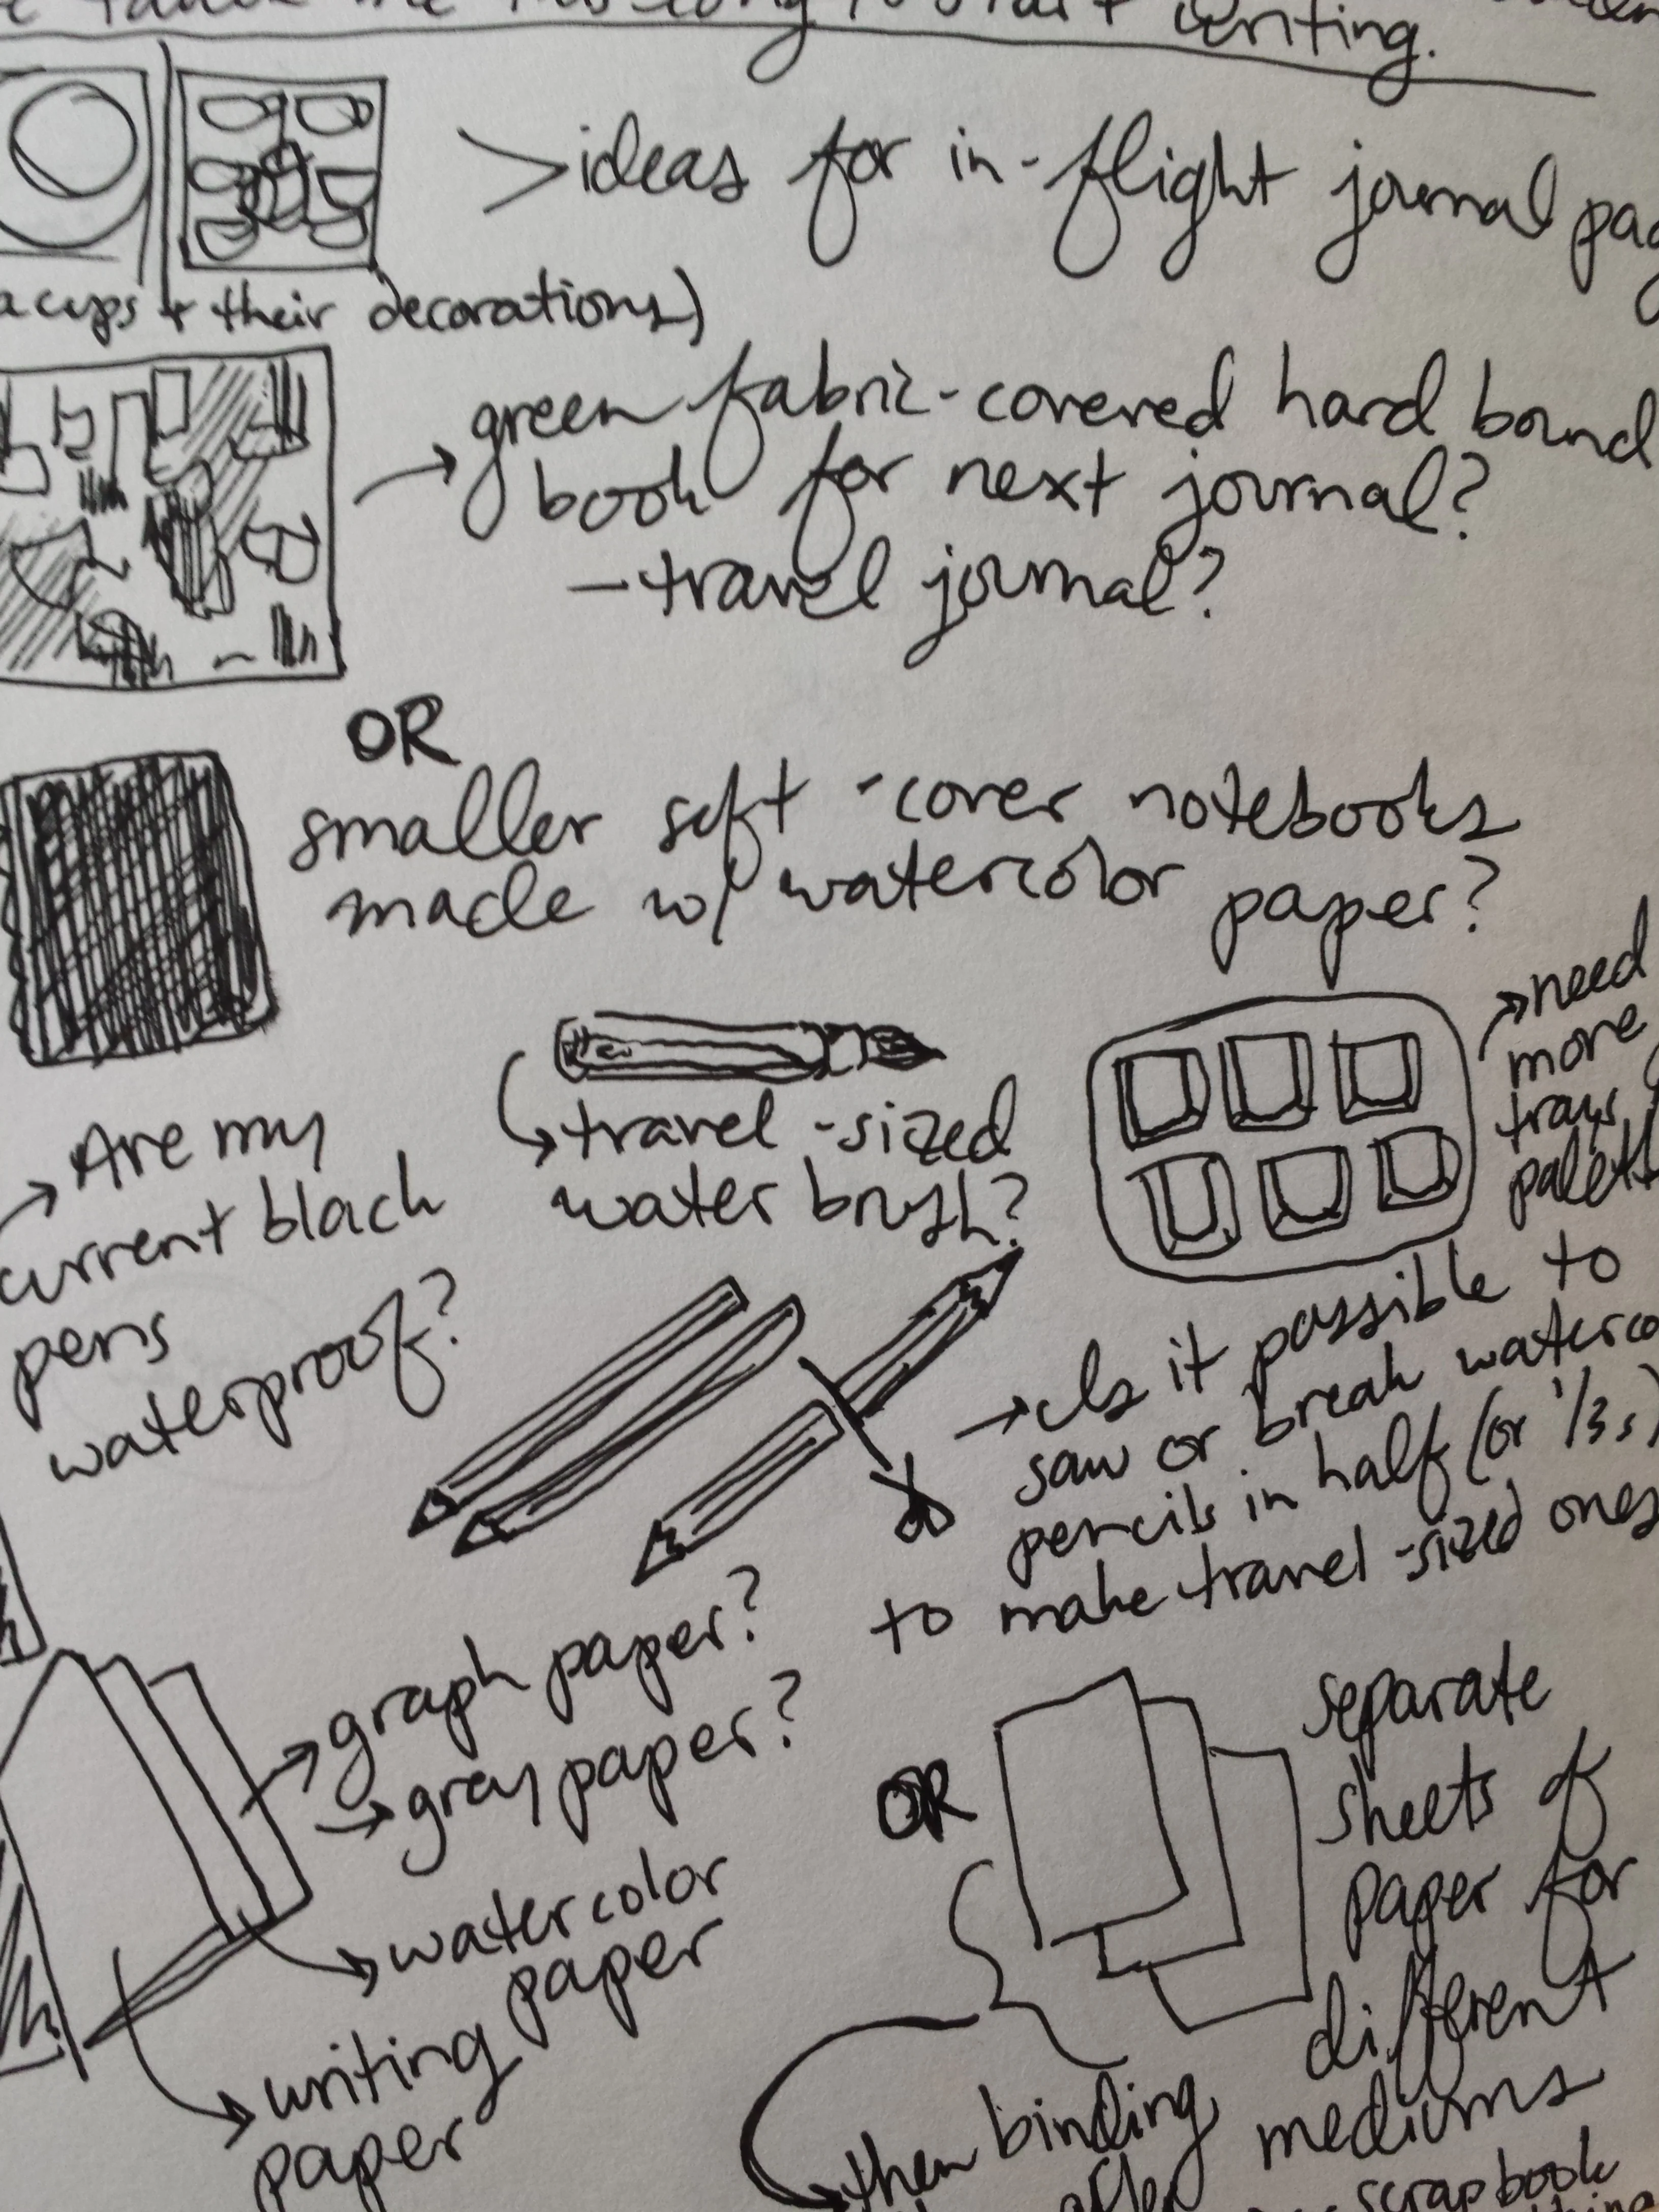 me this long to start writing.
> ideas for in-flight journal
cups + their decorations)
→ green fabric-covered hard bound
book for next journal?
- travel journal?
OR
smaller soft-cover notebooks
made w/ watercolor paper?
→ need
more
trays
→ travel-sized
water brush?
→ Are my
current black
pens
waterproof?
→ Is it possible to
saw or break
pencils in half (or 1/3s)
to make travel-sized ones
→ graph paper?
→ gray paper?
→ watercolor
paper
→ writing
paper
OR
separate
sheets of
paper for
different
mediums
→ then binding
scrapbook